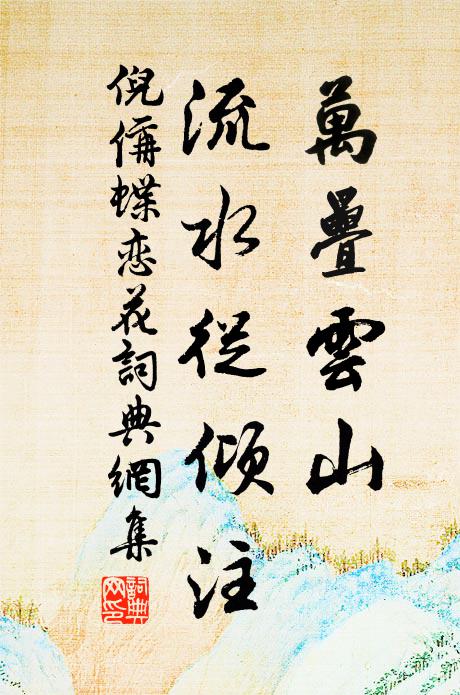 萬疊雲山
流水從傾注
倪偁蝶恋花詞典網集
詞典